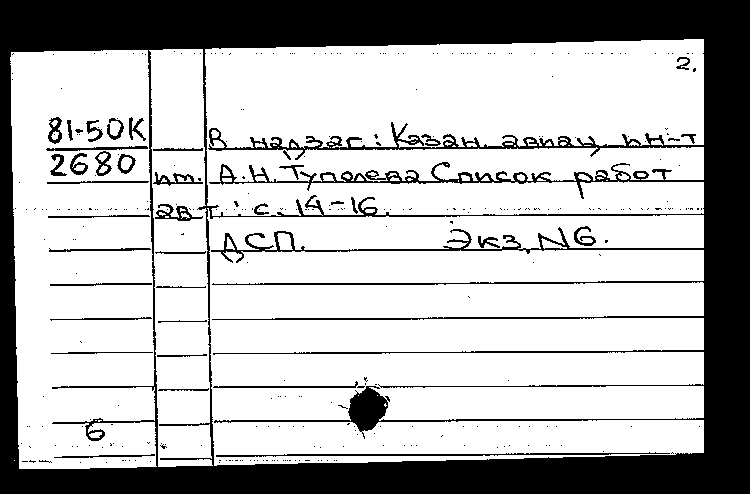 2.
81-50К В надзаг.: Казан. авиац. ин-т
2680 им. А.Н. Туполева Список работ
авт.: с. 14-16.
ДСП. Экз. N6.
6